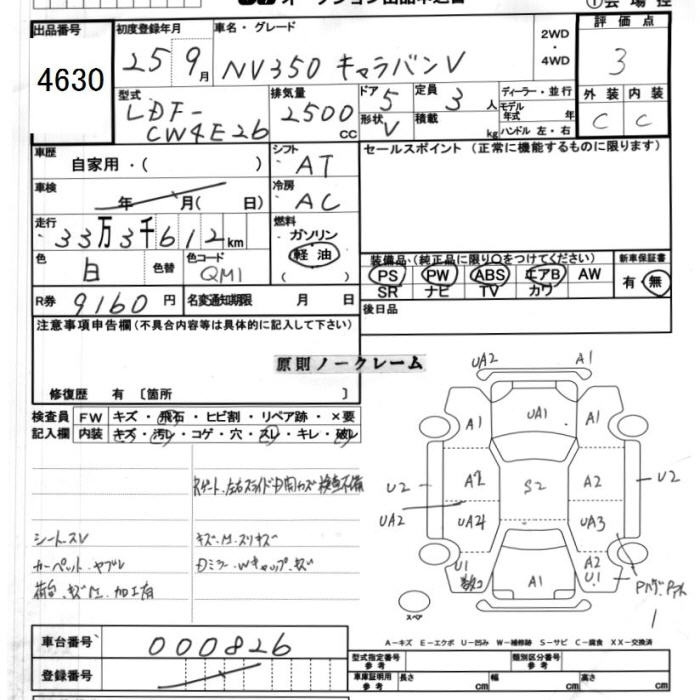 オークション出品申込書
①会場控
出品番号
4630
初度登録年月
25 9月
車名・グレード
NV350 キャラバンV
2WD・4WD
評価点
3
外装 内装
C C
型式
LDF-CW4E26
排気量
2500cc
ドア 5
形状 V
定員 3人
積載 kg
ディーラー・並行
モデル年式 年
ハンドル 左・右
車歴
自家用・( )
シフト
AT
セールスポイント(正常に機能するものに限ります)
車検
年 月( 日)
冷房
AC
走行
33万3千612km
燃料
ガソリン
軽油
( )
色
白
色替
色コード
QM1
装備品(純正品に限り○をつけてください)
PS PW ABS エアB AW
SR ナビ TV カワ
新車保証書
有・無
R券 9160円
名変通知期限 月 日
後日品
注意事項申告欄(不具合内容等は具体的に記入して下さい)
原則ノークレーム
修復歴 有〔箇所 〕
検査員記入欄
FW キズ・飛石・ヒビ割・リペア跡・×要
内装 キズ・汚レ・コゲ・穴・スレ・キレ・破レ
シートスV
カーペット、ヤブレ
荷台、キズM、加工有
キズ、M、スリキズ
Dミラー、Wキャップ、キズ
UA2 A1
A1 UA1 A1
U2 A2 S2 A2 U2
UA2 UA4 UA3
U1 A1 A2 U1
スペア
車台番号
000826
登録番号
A-キズ E-エクボ U-凹み W-補修跡 S-サビ C-腐食 XX-交換済
型式指定番号 参考
類別区分番号 参考
車庫証明用 参考 長さ cm 幅 cm 高さ cm